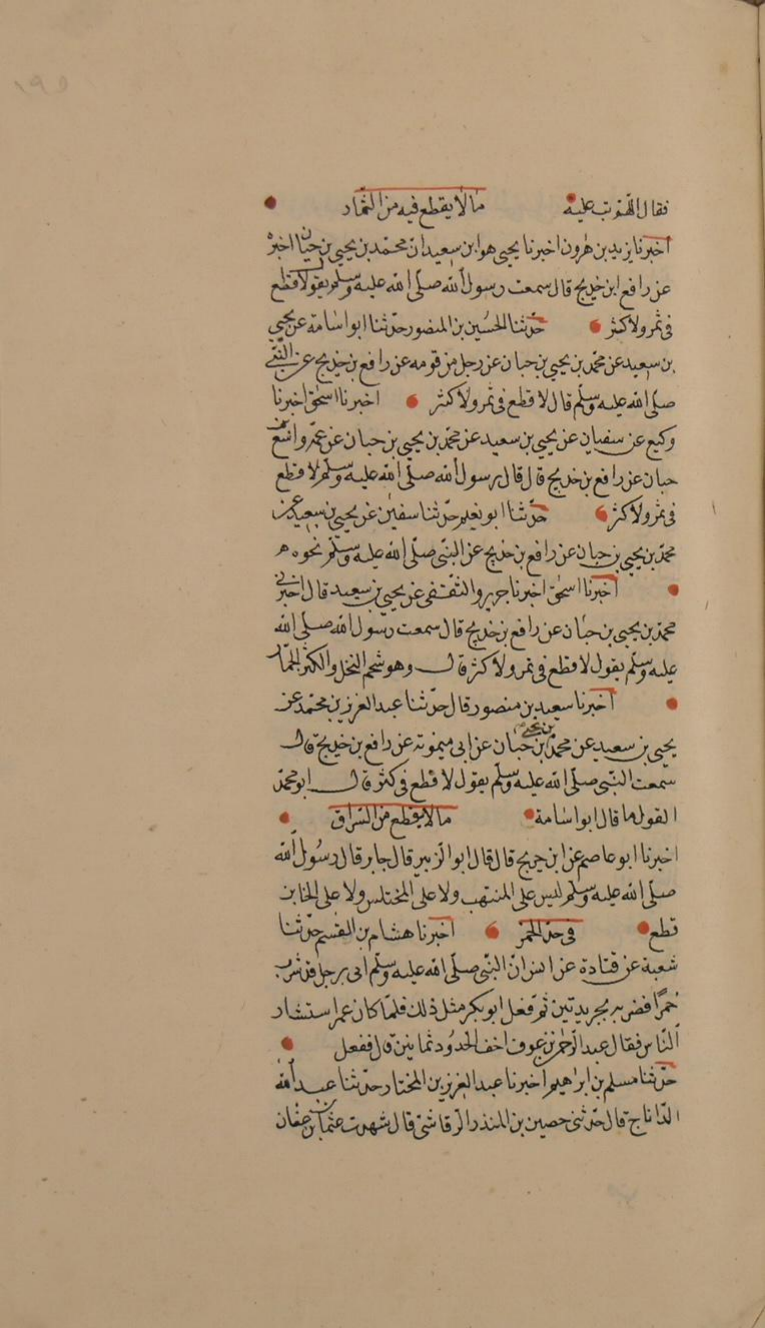 ١٩٥
فقال اللهم تب عليه ما لا يقطع فيه من الثمار
اخبرنا يزيد بن هرون اخبرنا يحيى هو ابن سعيد ان محمد بن يحيى بن حبان اخبره
عن رافع ابن خديج قال سمعت رسول الله صلى الله عليه وسلم يقول لا قطع
فى ثمر ولا كثر حدثنا الحسين بن المنصور حدثنا ابو اسامة عن يحيى
بن سعيد عن محمد بن يحيى بن حبان عن رجل من قومه عن رافع بن خديج عن النبي
صلى الله عليه وسلم قال لا قطع فى ثمر ولا كثر اخبرنا اسحق اخبرنا
وكيع عن سفيان عن يحيى بن سعيد عن محمد بن يحيى بن حبان عن عمه واسع
حبان عن رافع بن خديج قال قال رسول الله صلى الله عليه وسلم لا قطع
فى ثمر ولا كثر حدثنا ابو نعيم حدثنا سفين عن يحيى بن سعيد عن
محمد بن يحيى بن حبان عن رافع بن خديج عن النبى صلى الله عليه وسلم نحوه ه
اخبرنا اسحق اخبرنا جرير والثقفى عن يحيى بن سعيد قال اخبرنى
محمد بن يحيى بن حبان عن رافع بن خديج قال سمعت رسول الله صلى الله
عليه وسلم يقول لا قطع فى ثمر ولا كثر قال وهو شحم النخل والكثر الجمار
اخبرنا سعيد بن منصور قال حدثنا عبد العزيز بن محمد عن
يحيى بن سعيد عن محمد بن يحيى بن حبان عن ابى ميمونة عن رافع بن خديج قال
سمعت النبى صلى الله عليه وسلم يقول لا قطع فى كثر قال ابو محمد
القول ما قال ابو اسامة ما لا يقطع من السراق
اخبرنا ابو عاصم عن ابن جريج قال قال ابو الزبير قال جابر قال رسول الله
صلى الله عليه وسلم ليس على المنتهب ولا على المختلس ولا على الخاين
قطع فى حد الخمر اخبرنا هشام بن القسم حدثنا
شعبة عن قتادة عن انس ان النبى صلى الله عليه وسلم اتى برجل قد شرب
خمرا فضربه بجريدتين ثم فعل ابو بكر مثل ذلك فلما كان عمر استشار
الناس فقال عبد الرحمن بن عوف اخف الحدود ثمانين قال ففعل
حدثنا مسلم بن ابراهيم اخبرنا عبد العزيز بن المختار حدثنا عبد الله
الداناج قال حدثنى حصين بن المنذر الرقاشى قال شهدت عثمان بن عفان